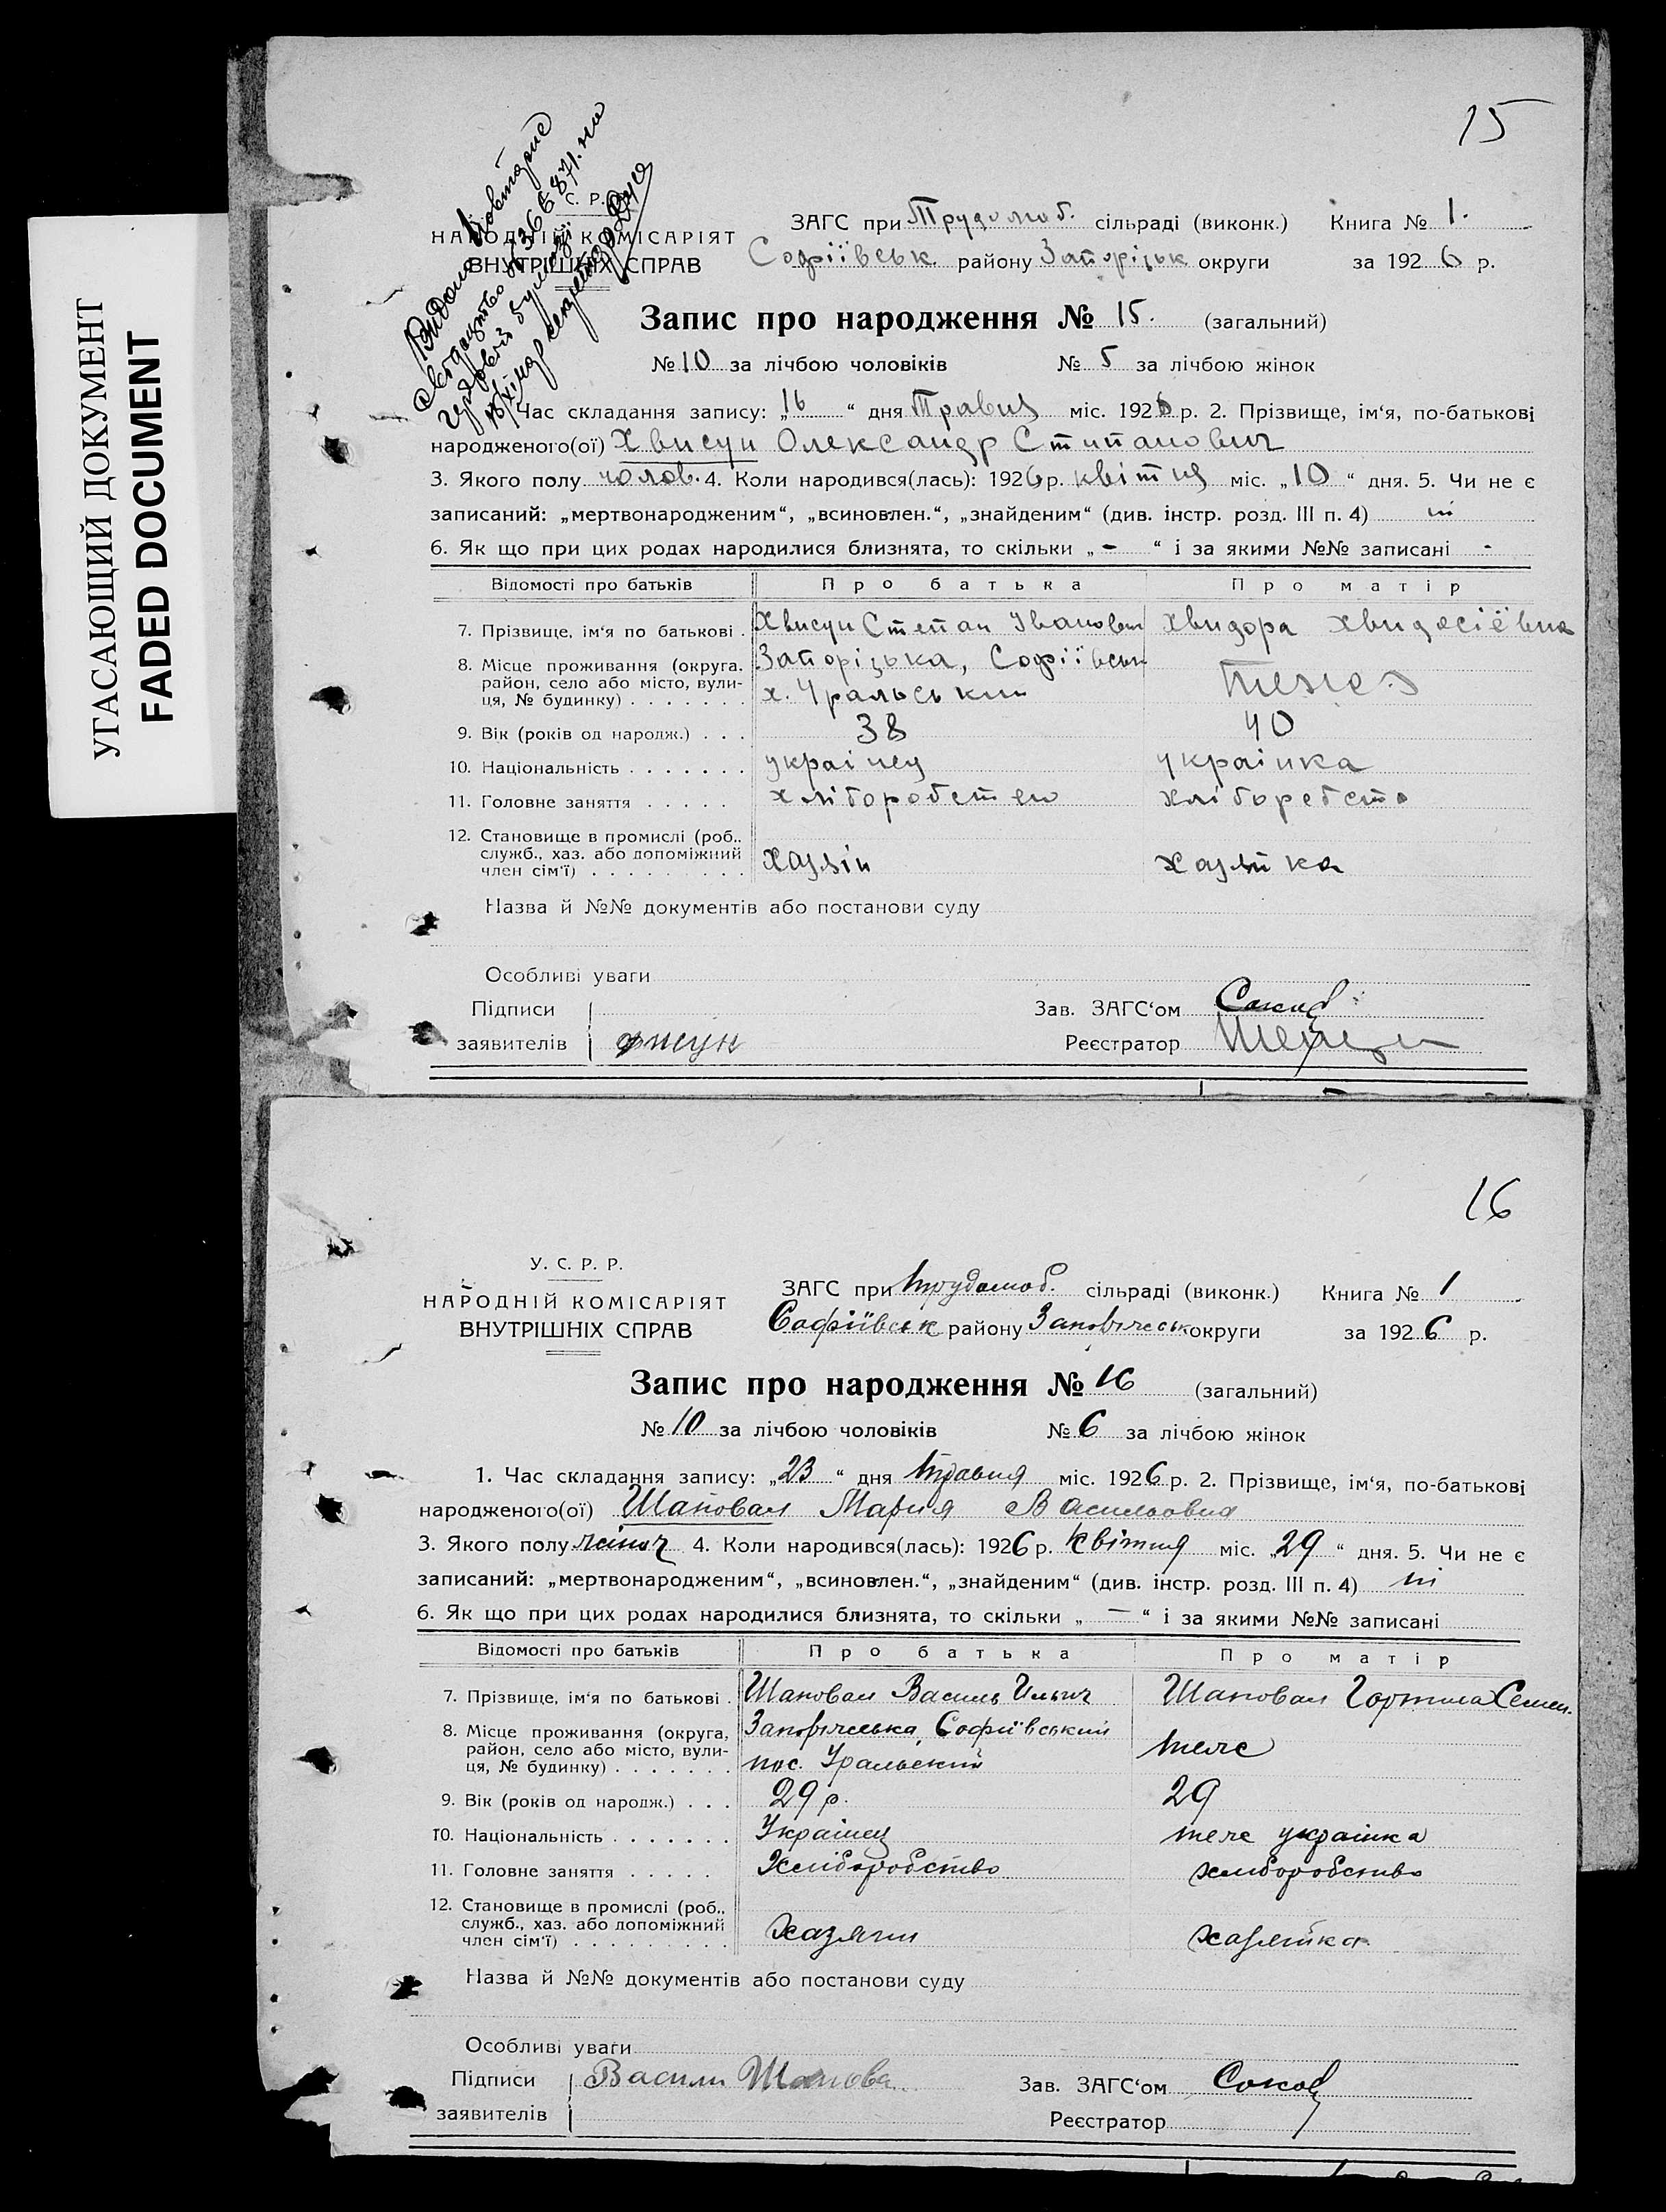 УГАСАЮЩИЙ ДОКУМЕНТ
FADED DOCUMENT
15
С. Р.
НАРОДНІЙ КОМІСАРІЯТ
ВНУТРІШНІХ СПРАВ
ЗАГС при Трудолюб. сільраді (виконк.) Книга № 1.
Софіївськ району Запорізьк округи за 1926 р.
Запис про народження № 15. (загальний)
№ 10 за лічбою чоловіків № 5 за лічбою жінок
Час складання запису: „16“ дня Травня міс. 1926 р. 2. Прізвище, ім'я, по-батькові
народженого(ої) Хвисун Олександр Стипанович
3. Якого полу чолов. 4. Коли народився(лась): 1926 р. квітня міс. „10“ дня. 5. Чи не є
записаний: „мертвонародженим“, „всиновлен.“, „знайденим“ (див. інстр. розд. III п. 4) ні
6. Як що при цих родах народилися близнята, то скільки „-“ і за якими №№ записані -
Відомості про батьків Про батька Про матір
7. Прізвище, ім'я по батькові . Хвисун Степан Іванович Хвидора Хвидосіёвна
8. Місце проживання (округа, район, село або місто, вулиця, № будинку) . . . . . . . Запорізька, Софіївськ
х. Уральський
9. Вік (років од народж.) . . . 38 40
10. Національність . . . . . . . українец українка
11. Головне заняття . . . . .
12. Становище в промислі (роб., служб., хаз. або допоміжний член сім'ї) . . . . . . . . . хазяін хазяйка
Назва й №№ документів або постанови суду
Особливі уваги
Підписи Зав. ЗАГС'ом
заявителів Реєстратор
16
У. С. Р. Р.
НАРОДНІЙ КОМІСАРІЯТ
ВНУТРІШНІХ СПРАВ
ЗАГС при Трудолюб. сільраді (виконк.) Книга № 1
Софіївськ району округи за 1926 р.
Запис про народження № 16 (загальний)
№ 10 за лічбою чоловіків № 6 за лічбою жінок
1. Час складання запису: „23“ дня Травня міс. 1926 р. 2. Прізвище, ім'я, по-батькові
народженого(ої) Шаповал Мария Васильовна
3. Якого полу жіноч 4. Коли народився(лась): 1926 р. Квітня міс. „29“ дня. 5. Чи не є
записаний: „мертвонародженим“, „всиновлен.“, „знайденим“ (див. інстр. розд. III п. 4) ні
6. Як що при цих родах народилися близнята, то скільки „—“ і за якими №№ записані
Відомості про батьків Про батька Про матір
7. Прізвище, ім'я по батькові . Шаповал Василь Ильич Шаповал Горпина Семен.
8. Місце проживання (округа, район, село або місто, вулиця, № будинку) . . . . . . . Софиівський теже
пос. Уральский
9. Вік (років од народж.) . . . 29 р. 29
10. Національність . . . . . . . Українец теже українка
11. Головне заняття . . . . . Хліборобство хліборобство
12. Становище в промислі (роб., служб., хаз. або допоміжний член сім'ї) . . . . . . . . . хазяин хазяйка
Назва й №№ документів або постанови суду
Особливі уваги
Підписи Василь Шапова Зав. ЗАГС'ом
заявителів Реєстратор